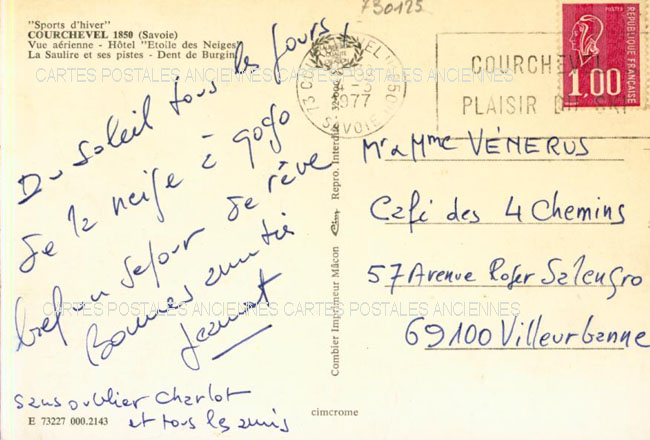 730125
"Sports d'hiver"
COURCHEVEL 1850 (Savoie)
Vue aérienne - Hôtel "Etoile des Neiges"
La Saulire et ses pistes - Dent de Burgin
CARTES POSTALES ANCIENNES CARTES POSTALES ANCIENNES
Du soleil tous les jours,
de la neige à gogo
bref un séjour de rêve
Bonnes amitiés
Jeannot
sans oublier Charlot
et tous les amis
E 73227 000.2143
CARTES POSTALES ANCIENNES CARTES POSTALES ANCIENNES
Combier Imprimeur Mâcon Cim Repro. Interdite
cimcrome
1977
SAVOIE
COURCHEVEL
PLAISIR DU SKI
1,00
REPUBLIQUE FRANÇAISE
Mr & Mme VÉNERUS
Café des 4 Chemins
57 Avenue Roger Salengro
69100 Villeurbanne